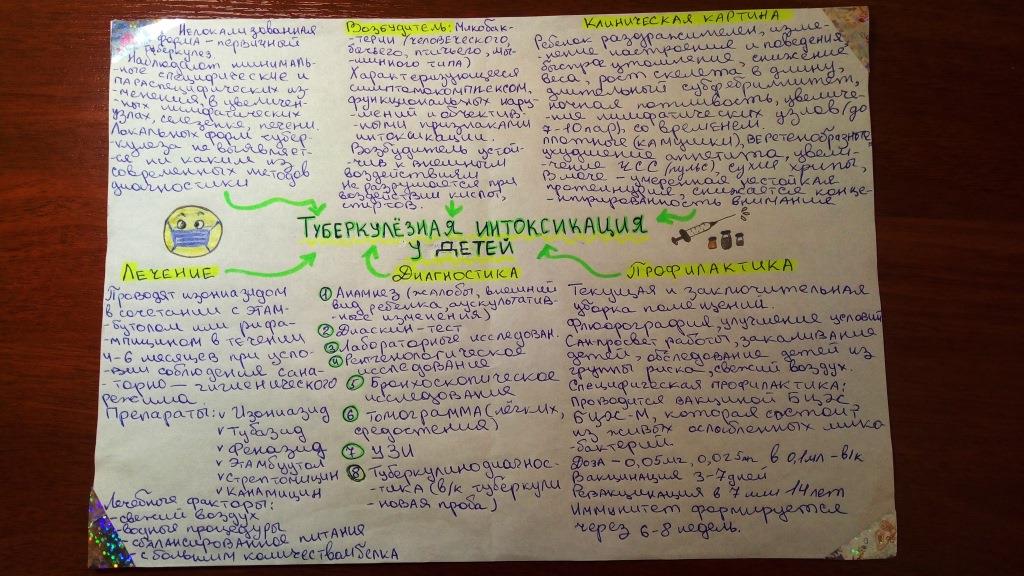 Нелокализованная
форма - первичный
туберкулез
Наблюдают минималь-
-ные специфические и
параспецифических из
-менения, в увеличен-
-ных лимфатических
узлах, селезенке, печени.
Локальных форм тубер-
-кулеза не выявляет-
-ся ни каким из
современных методов
диагностики
Возбудитель: Микобак-
-терии (человеческого
бычьего, птичьего, мы-
-шинного типа)
Характеризующееся
симптомокомплексом
функциональных нару-
-шений и объектив-
-ными признаками
интоксикации.
Возбудитель устой-
-чив к внешним
воздействиям
не разрушается при
воздействии кислот,
спиртов.
КЛИНИЧЕСКАЯ КАРТИНА
Ребенок раздражителен, изме-
-нение настроения и поведения
быстрое утомление, снижение
веса - рост скелета в длину,
длительный субфебрилитет,
ночная потливость, увеличе-
-ние лимфатических узлов (до
7-10 пар), со временем.
плотные (камушки), веретенообразные,
ухудшение аппетита, увели-
-чение ЧСС (пульс), сухие хрипы,
В моче - умеренной нестойкая
протеинурия снижается конце-
-нтрированность внимание
ТУБЕРКУЛЁЗНАЯ ИНТОКСИКАЦИЯ
У ДЕТЕЙ
ЛЕЧЕНИЕ
Проводят изониазидом
в сочетании с этам-
-бутолом или рифа-
-мпицином в течении
4-6 месяцев при усло-
-вии соблюдение сана-
-торно-гигиенического
режима
Препараты: ✓ Изониазид
✓ Тубазид
✓ Феназид
✓ Этамбуутол
✓ Стрептомицин
✓ Канамицин
Лечебные факторы:
- свежий воздух
- водные процедуры
- сбалансированное питание
- с большим количеством белка
ДИАГНОСТИКА
1 Анамнез (жалобы, внешний
вид ребенка, аускультатив-
-ные изменения)
2 Диаскин-тест
3 Лабораторные исследован.
4 Рентгенологическое
исследование
5 Бронхоскопическое
исследования
6 Томограмма (лёгких,
средостения)
7 УЗИ
8 Туберкулинодиагнос-
-тика (в/к туберкули
-новая проба)
ПРОФИЛАКТИКА
Текущая и заключительная
уборка помещений.
Флюорография, улучшения условий
Санпросвет работы, закаливание
детей, обследование детей из
группы риска, свежий воздух.
Специфическая профилактика:
Проводится вакциной БЦЖ
БЦЖ-М, которая состоит
из живых ослабленных мика
-бактерий
Доза - 0,05мг, 0,025мг в 0,1мл - в/к
Вакцинация 3-7дней
Ревакцинация в 7 или 14 лет
Иммунитет формируется
через 6-8 недель.